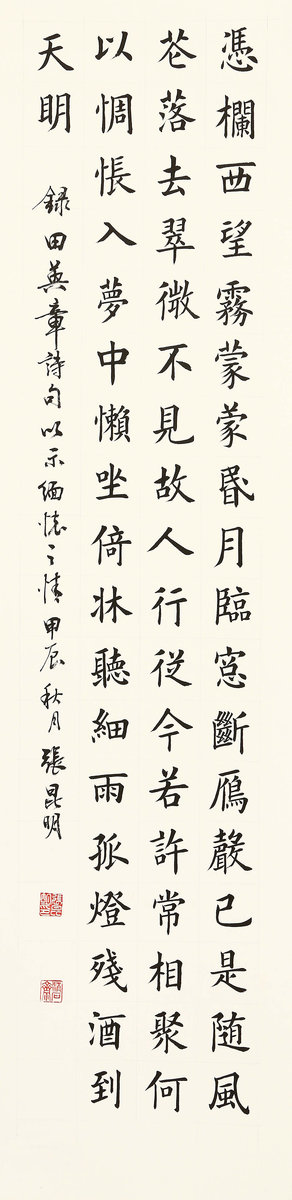 憑欄西望霧蒙蒙昬月臨窓斷鴈聲已是随風
花落去翠微不見故人行從今若許常相聚何
以惆悵入夢中懶坐倚牀聽細雨孤燈殘酒到
天明
録田英章詩句以示緬懷之情甲辰秋月張昆明